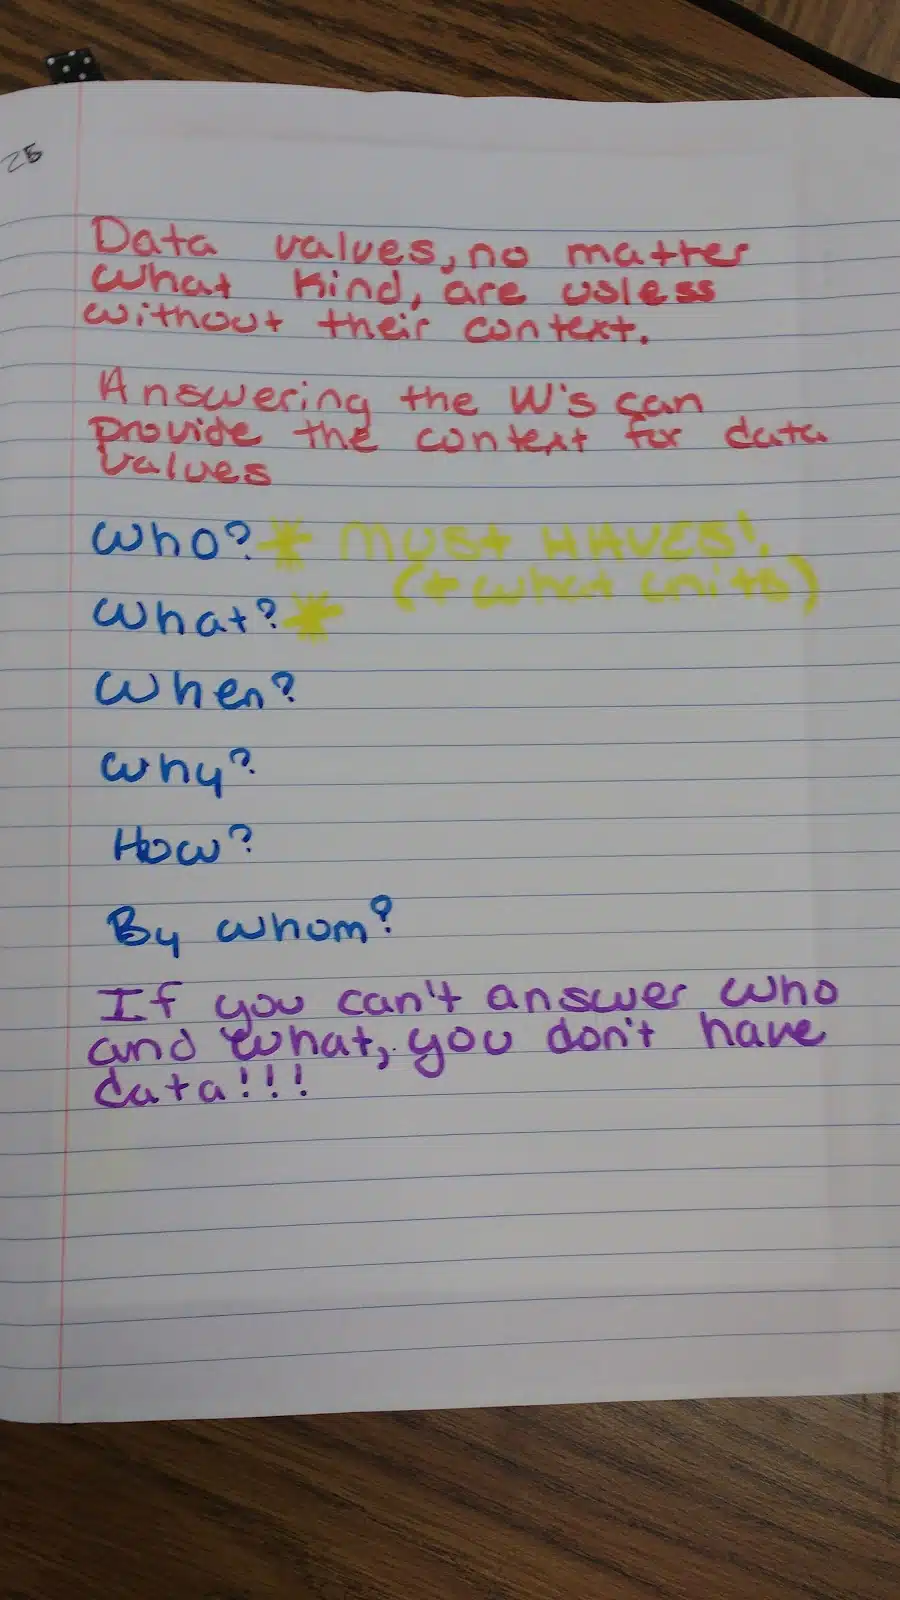 25
Data values, no matter
what kind, are usless
without their context.
Answering the W's can
provide the context for data
values
Who? * MUST HAVES!
(+ what units)
What? *
When?
Why?
How?
By whom?
If you can't answer who
and what, you don't have
data!!!